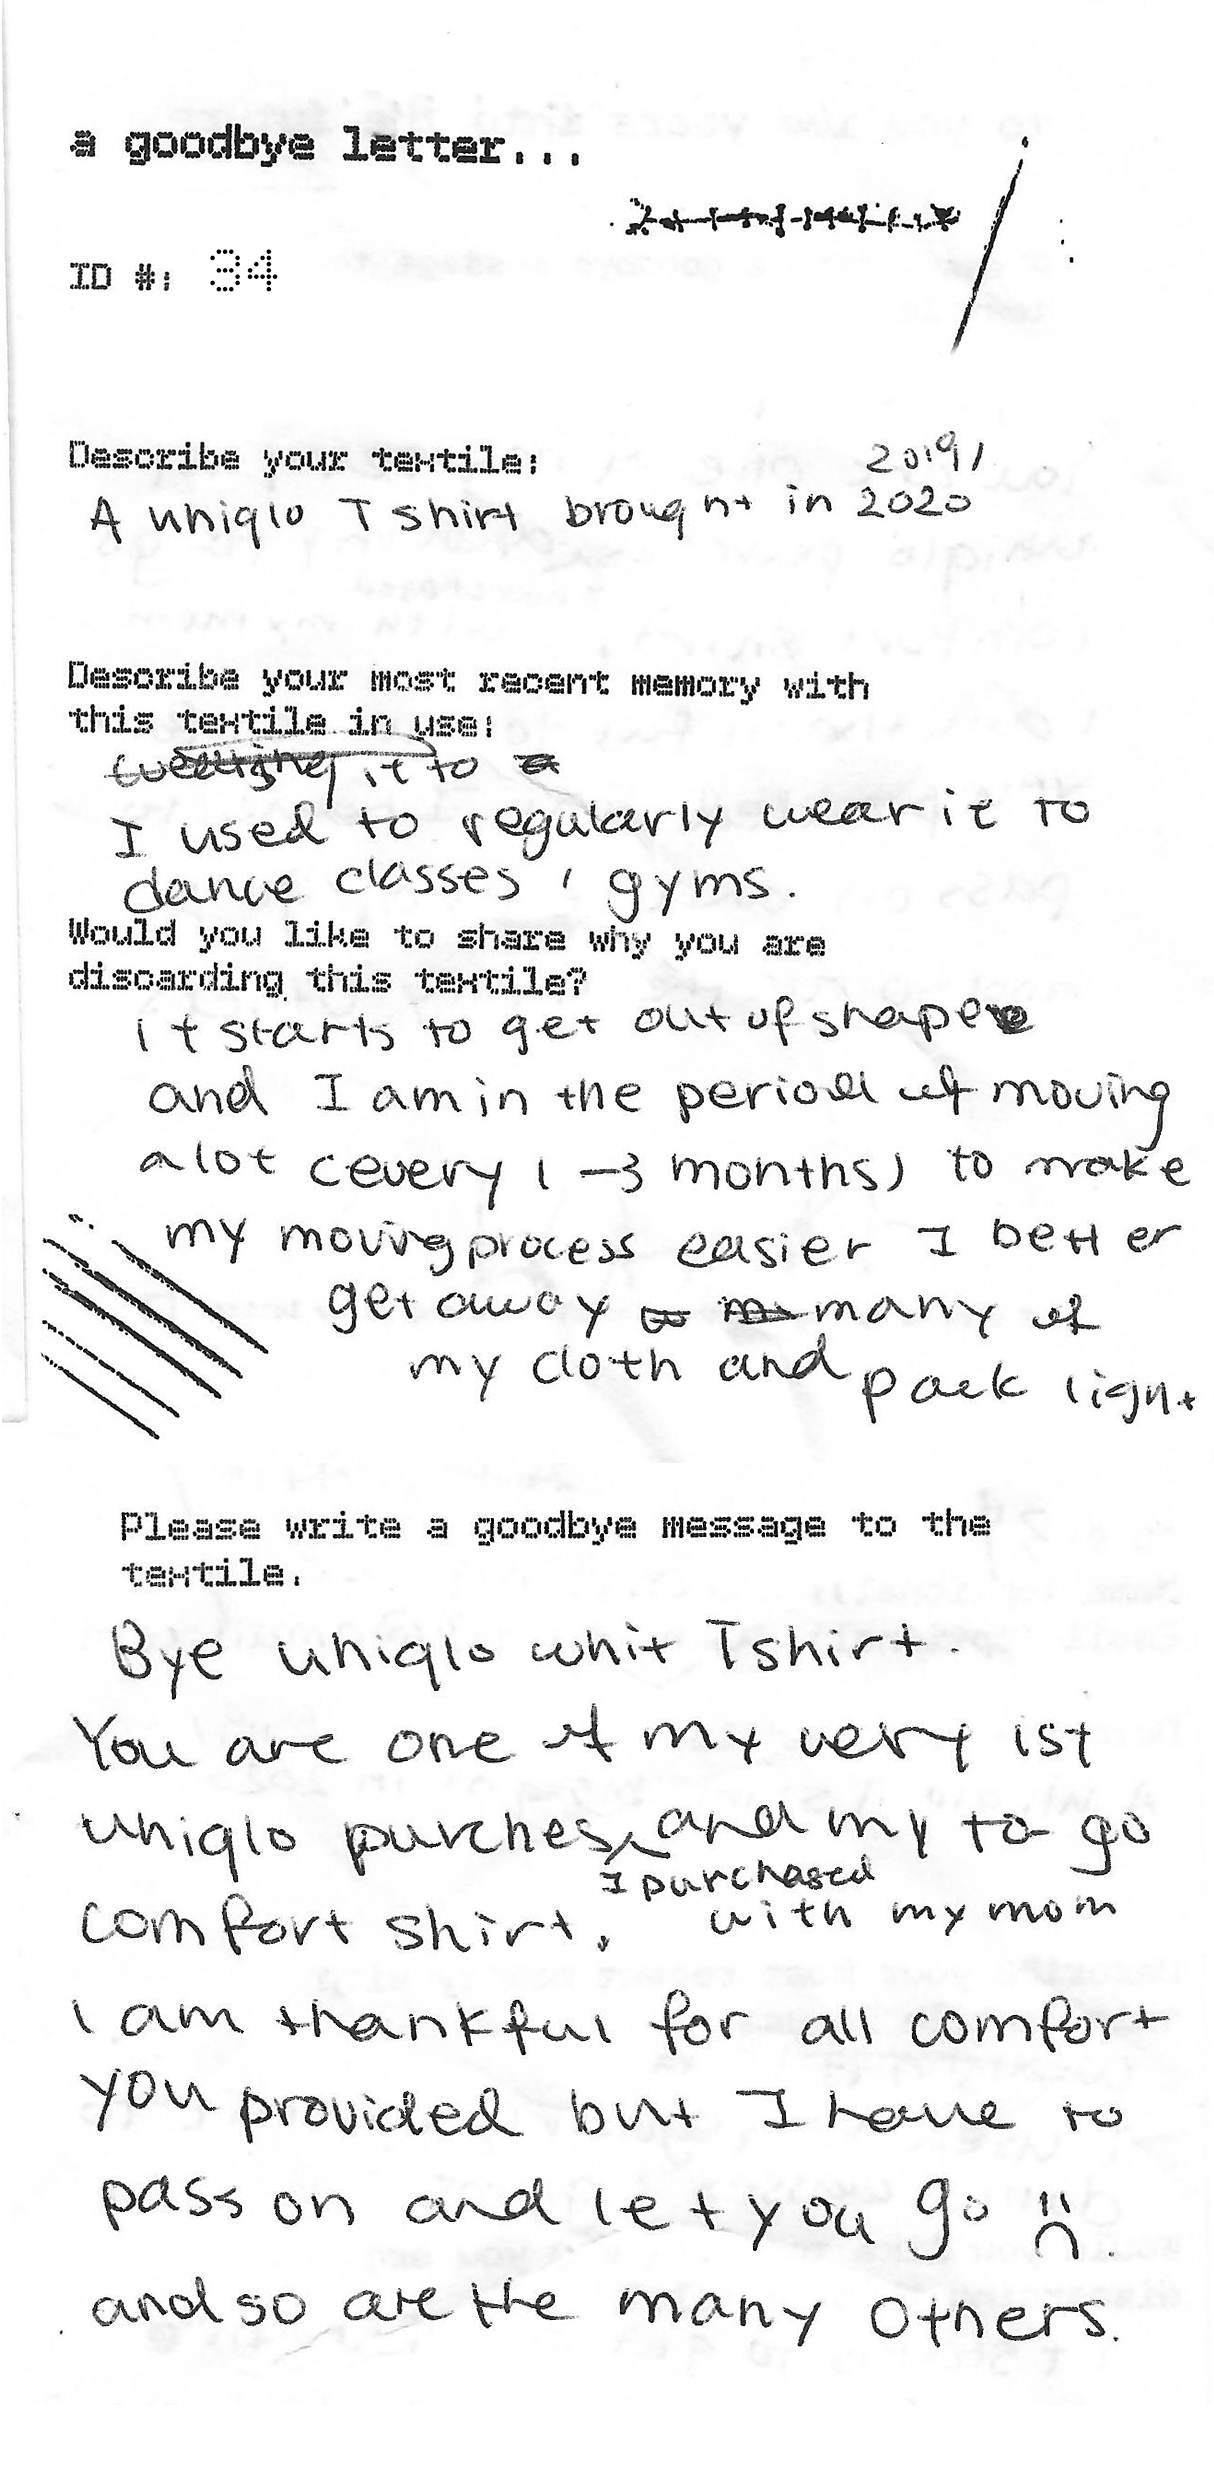 a goodbye letter...
ID #: 34
Describe your textile:
2019/
A uniqlo T shirt brought in 2020
Describe your most recent memory with
this textile in use:
it to a
I used to regularly wear it to
dance classes, gyms.
Would you like to share why you are
discarding this textile?
It starts to get out of shape
and I am in the period of moving
a lot (every 1-3 months) to make
my moving process easier I better
get away many of
my cloth and pack light
Please write a goodbye message to the
textile.
Bye uniqlo whit Tshirt.
You are one of my very 1st
uniqlo purches and my to go
I purchased
comfort shirt. with my mom
I am thankful for all comfort
you provided but I have to
pass on and let you go :(
and so are the many others.